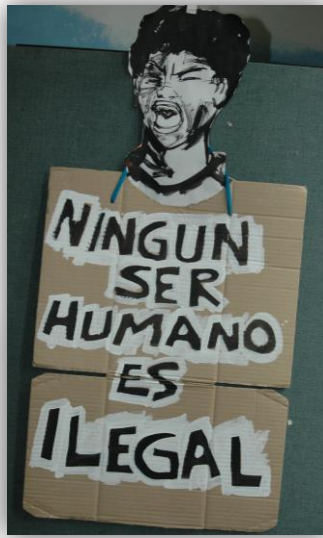 NINGUN
SER
HUMANO
ES
ILEGAL